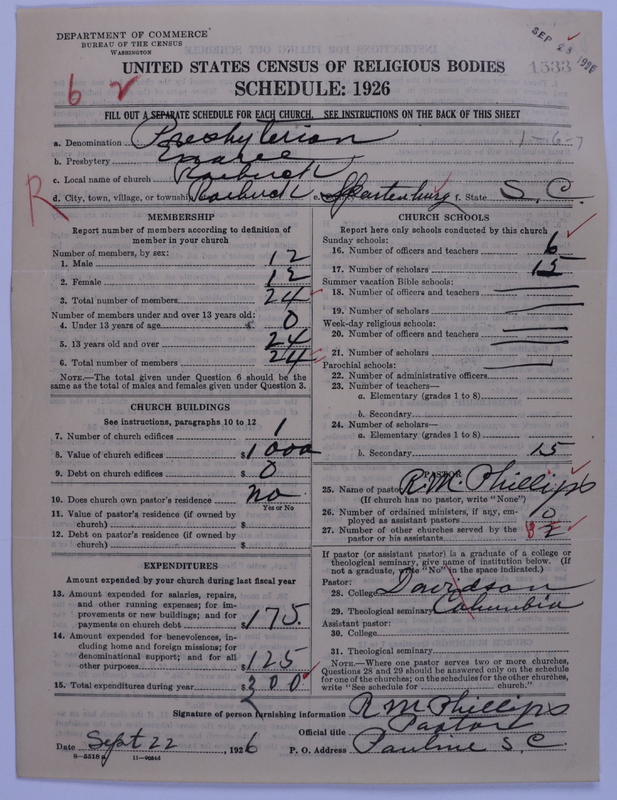 DEPARTMENT OF COMMERCE
BUREAU OF THE CENSUS
WASHINGTON
SEP 23 1926
1533
UNITED STATES CENSUS OF RELIGIOUS BODIES
SCHEDULE: 1926
6
FILL OUT A SEPARATE SCHEDULE FOR EACH CHURCH. SEE INSTRUCTIONS ON THE BACK OF THIS SHEET
a. Denomination Presbyterian
1-6-7
b. Presbytery Enoree
c. Local name of church Roebuck
R
d. City, town, village, or township Roebuck e. Spartenburg f. State S. C.
MEMBERSHIP
Report number of members according to definition of member in your church
Number of members, by sex:
1. Male 12
2. Female 12
3. Total number of members 24
Number of members under and over 13 years old:
4. Under 13 years of age 0
5. 13 years old and over 24
6. Total number of members 24
NOTE.—The total given under Question 6 should be the
same as the total of males and females given under Question 3.
CHURCH BUILDINGS
See instructions, paragraphs 10 to 12
7. Number of church edifices 1
8. Value of church edifices $1000
9. Debt on church edifices $0
10. Does church own pastor's residence no
Yes or No
11. Value of pastor's residence (if owned by
church) $
12. Debt on pastor's residence (if owned by
church) $
EXPENDITURES
Amount expended by your church during last fiscal year
13. Amount expended for salaries, repairs,
and other running expenses; for im-
provements or new buildings; and for
payments on church debt $175.
14. Amount expended for benevolences, in-
cluding home and foreign missions; for
denominational support; and for all
other purposes $125
15. Total expenditures during year $300
CHURCH SCHOOLS
Report here only schools conducted by this church
Sunday schools:
16. Number of officers and teachers 6
17. Number of scholars 15
Summer vacation Bible schools:
18. Number of officers and teachers
19. Number of scholars
Week-day religious schools:
20. Number of officers and teachers
21. Number of scholars
Parochial schools:
22. Number of administrative officers
23. Number of teachers—
a. Elementary (grades 1 to 8)
b. Secondary
24. Number of scholars—
a. Elementary (grades 1 to 8)
b. Secondary 15
PASTOR
25. Name of pastor R. M. Phillips
(If church has no pastor, write "None")
26. Number of ordained ministers, if any, em-
ployed as assistant pastors 0
27. Number of other churches served by the
pastor or his assistants 2
If pastor (or assistant pastor) is a graduate of a college or
theological seminary, give name of institution below. (If
not a graduate, write "No" in the space indicated.)
Pastor:
28. College Davidson
29. Theological seminary Columbia
Assistant pastor:
30. College
31. Theological seminary
NOTE.—Where one pastor serves two or more churches,
Questions 28 and 29 should be answered only on the schedule
for one of the churches; on the schedules for the other churches,
write "See schedule for church."
Signature of person furnishing information R M Phillips
Official title Pastor
Date Sept 22, 1926 P. O. Address Pauline S. C.
8-5518 a 11-90564